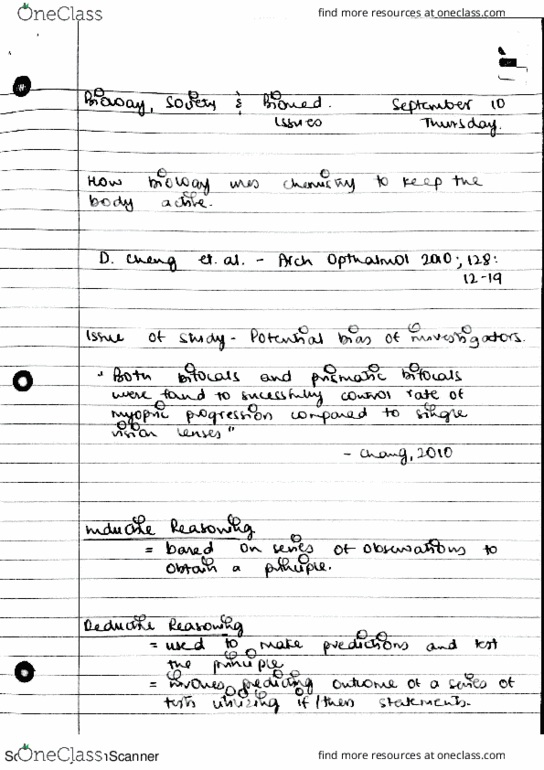 OneClass
find more resources at oneclass.com
Biology, Society & Biomed. September 10
Issues Thursday.
How biology uses chemistry to keep the
body active.
D. Cheng et. al. - Arch Opthalmol 2010; 128:
12-19
Issue of study - Potential bias of investigators.
"Both bifocals and prismatic bifocals
were found to sucessfully control rate of
myopic progression compared to single
vision lenses"
- Cheng, 2010
Inductive Reasoning
= based on series of observations to
obtain a principle.
Deductive Reasoning
= used to make predictions and test
the principle
= involves predicting outcome of a series of
tests utilizing if/then statements.
OneClass Scanner
find more resources at oneclass.com